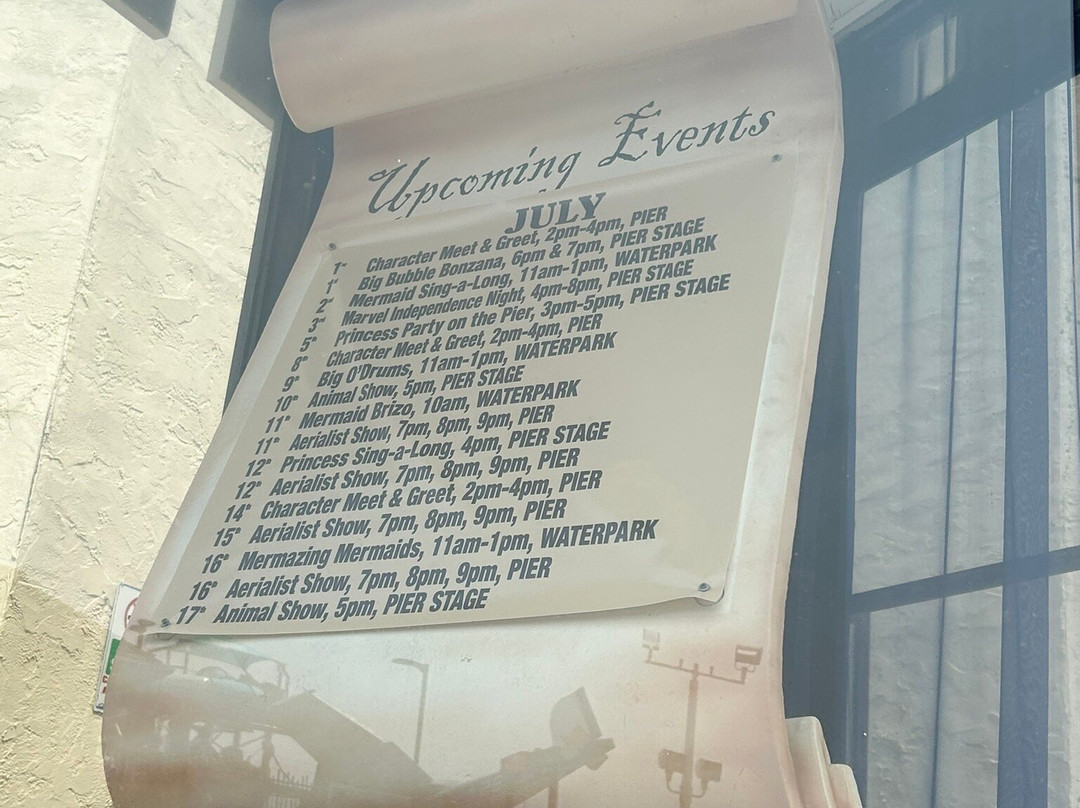 Upcoming Events
JULY
1° Character Meet & Greet, 2pm-4pm, PIER
1° Big Bubble Bonzana, 6pm & 7pm, PIER STAGE
2° Mermaid Sing-a-Long, 11am-1pm, WATERPARK
3° Marvel Independence Night, 4pm-8pm, PIER STAGE
5° Princess Party on the Pier, 3pm-5pm, PIER STAGE
8° Character Meet & Greet, 2pm-4pm, PIER
9° Big O'Drums, 11am-1pm, WATERPARK
10° Animal Show, 5pm, PIER STAGE
11° Mermaid Brizo, 10am, WATERPARK
11° Aerialist Show, 7pm, 8pm, 9pm, PIER
12° Princess Sing-a-Long, 4pm, PIER STAGE
12° Aerialist Show, 7pm, 8pm, 9pm, PIER
14° Character Meet & Greet, 2pm-4pm, PIER
15° Aerialist Show, 7pm, 8pm, 9pm, PIER
16° Mermazing Mermaids, 11am-1pm, WATERPARK
16° Aerialist Show, 7pm, 8pm, 9pm, PIER
17° Animal Show, 5pm, PIER STAGE